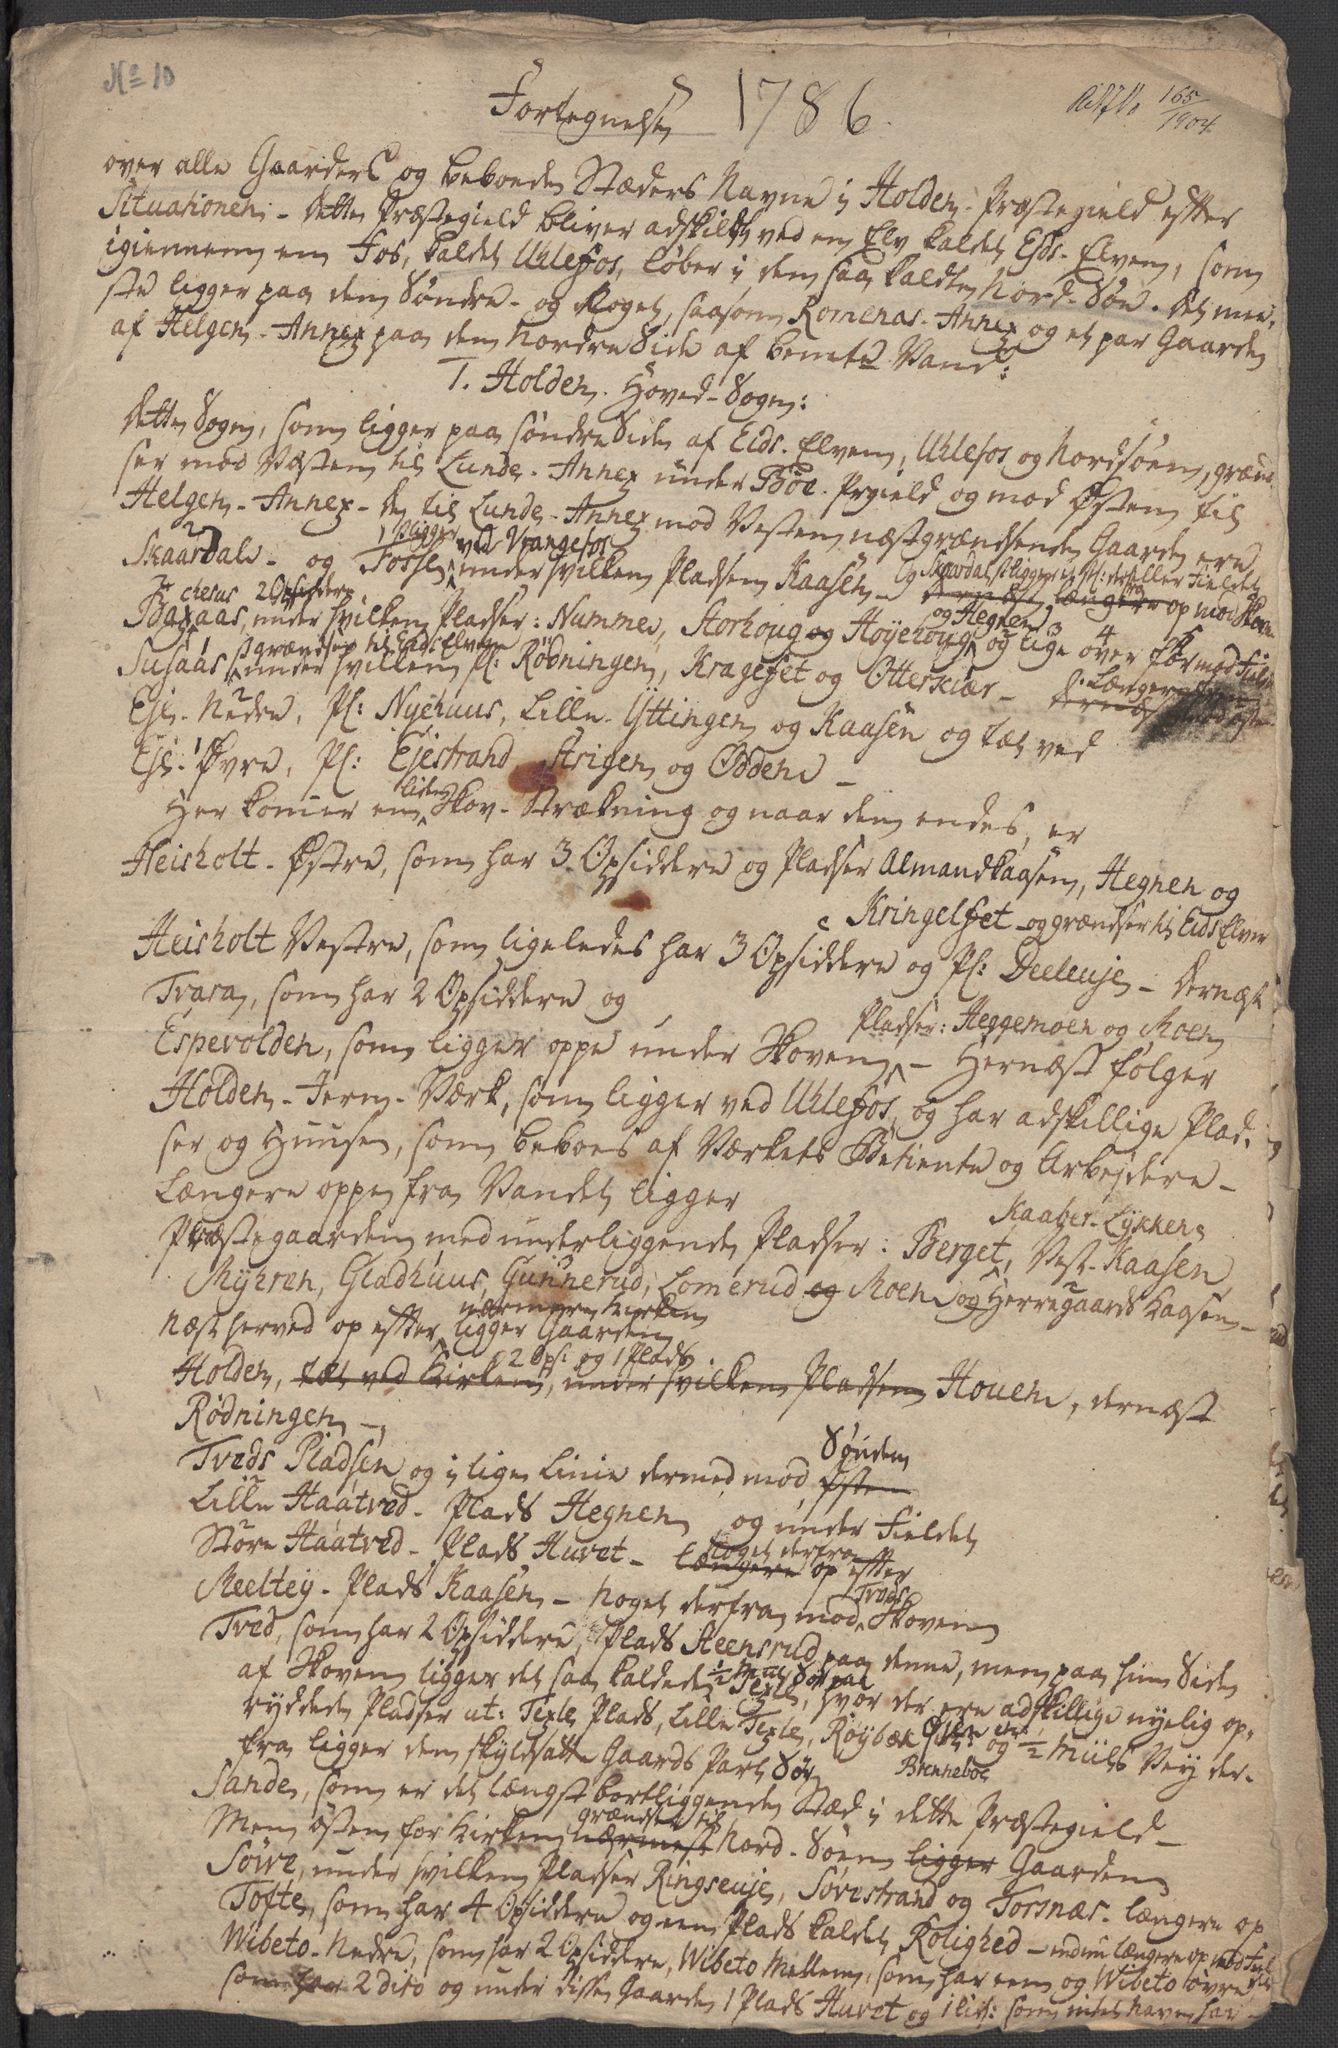 No 10
Fortegnelse 1786.
165/1904
over alle Gaarders og beboede Stæders Navne i Holden-Præstegield efter
Situationen - Dette Præstegield bliver adskildt ved en Elv kaldet Eids-Elven, som
igiennem en Fos, kaldet Uhlefos, løber i den saa kaldte Nord-Søe. Det mee-
ste ligger paa den Søndre- og Noget, saasom Romenas-Annex og et par Gaarde
af Helgen-Annex paa den Nordre Side af bemte Vand:
1. Holden Hoved-Sogn:
Dette Sogn, som ligger paa søndre Siden af Eids-Elven, Uhlefos og Nordsøen, grænd-
ser mod Vesten til Lunde-Annex under Bøe Prgield og mod Østen til
Helgen-Annex - De til Lunde-Annex mod Vesten næstgrændsende Gaarde ere
Skaardal - og Fosse, ligger ved Vrangefos under hvilken Pladsen Kaasen - og Skaardal ligger
Baxaas, 2 Opsiddere, under hvilken Pladser: Numme, Storhoug og Høyehoug og Hegnen og lige over for mod
Susaas, grændser til Eids Elven under hvilken Pl: Rødningen, Kragefet og Otterkiær - Længere
Eie-Nedre, Pl: Nyehuus, Lille-Yttingen og Kaasen og tæt ved
Eie-Øvre, Pl: Ejestrand, Strigen og Oddene -
Her komer en liden Skov-Strækning og naar den endes, er
Heisholt-Østre, som har 3 Opsiddere og Pladser Almandkaasen, Hegnen og
Kringelfet - og grændser til Eids Elven
Heisholt Vestre, som ligeledes har 3 Opsiddere og Pl: Deeleuje - dernæst
Tvara, som har 2 Opsiddere og
Pladser: Heggemoen og Moen
Espevolden, som ligger oppe under Skoven - Hernæst følger
Holden-Jern-Værk, som ligger ved Uhlefos, og har adskillige Plad-
ser og Huuse, som beboes af Værkets Betiente og Arbejdere -
Længere oppe fra Vandet ligger
Kaaber-Løkken
Præstegaarden med underliggende Pladser: Berget, Vest-Kaasen
Myhren, Gladhuus, Gunnerud, Lomerud og Moen og Herregaards Kaasen -
næst herved op efter nærmere Kirken ligger Gaarden
Holden, 2 Ops: og 1 Plads tæt ved Kirken, under hvilken Pladsen Houen, dernæst
Rødningen -
Tveds Pladsen og i lige Linie dermed mod Østen Sønden
Lille Haatved - Plads Hegnen og under Fieldet
Store Haatved - Plads Huvet - længere Noget derfra op efter
Meeltey - Plads Kaasen - Noget derfra mod Tveds Skoven
Tved, som har 2 Opsiddere, Plads Steensrud paa denne, men paa hin Side
af Skoven ligger det saa kaldede Texle, hvor der ere adskillige nyelig op-
ryddede Pladser ut: Texle Plads, Lille Texle, Røybæk og 1/2 Miils Vey der-
Brenneboe
fra ligger den skyldsatte Gaards Part Sør
Sande, som er det længst bortliggende Stæd i dette Præstegield -
Men østen for Kirken nærmest grændser til Nord-Søen ligger Gaarden
Søvre, under hvilken Pladser Ringseuje, Søvestrand og Torsnæs - længere op
Tofte, som har 4 Opsiddere og een Plads kaldet Rolighed - endnu længere op mod
Wibeto-Nedre, som har 2 Opsiddere, Wibeto Mellem, som har een og Wibeto øvre
som har 2 dito og under disse Gaarde 1 Plads Huvet og 1 som